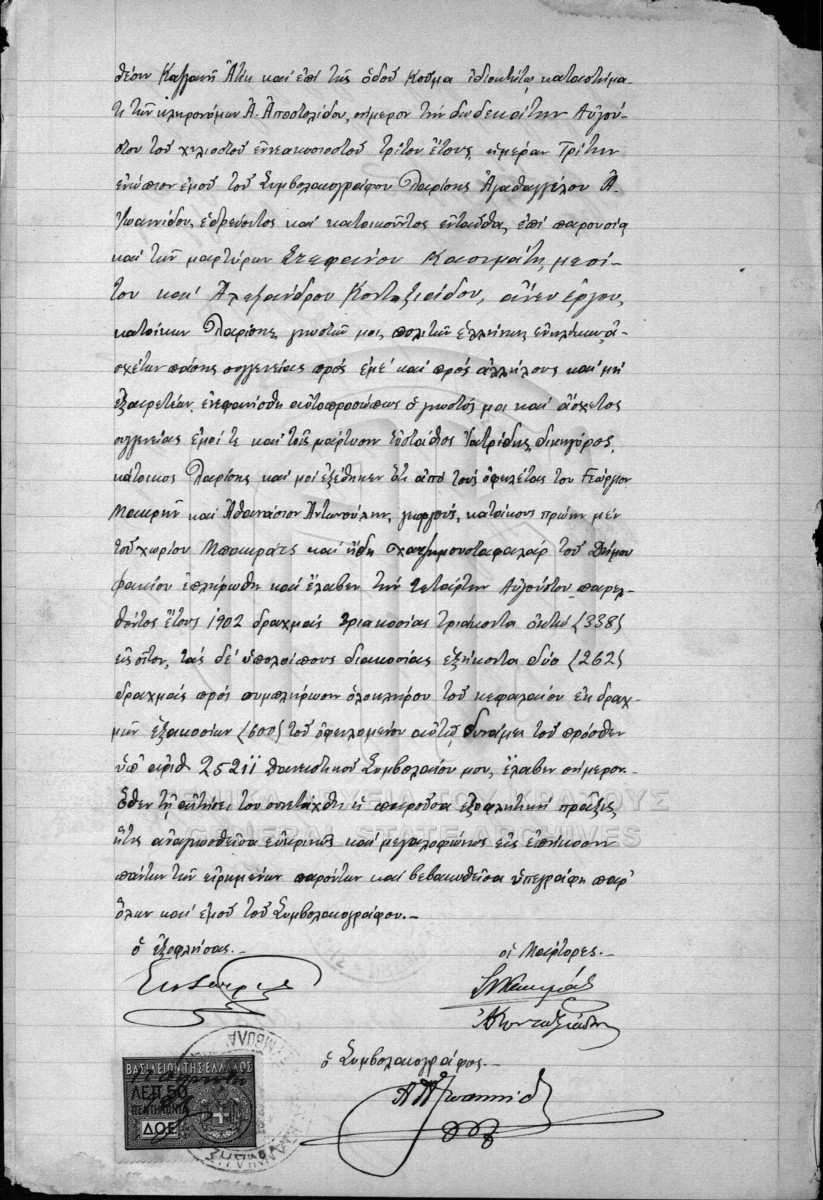 θέσιν Καζανή Ατικ και επί της οδού Κούμα ιδιοκτήτω καταστήμα-
τι των κληρονόμων Α. Αποστολίδου, σήμερον την δωδεκάτην Αυγού-
στου του χιλιοστού εννεακοσιοστού τρίτου έτους, ημέραν Τρίτην
ενώπιον εμού του Συμβολαιογράφου Λαρίσης Αγαθαγγέλου Α.
Ιωαννίδου, εδρεύοντος και κατοικούντος ενταύθα, επί παρουσία
και των μαρτύρων Στεφάνου Κασιμάτη, μεσί-
του και Αλεξάνδρου Κονταξιάδου, άνευ έργου,
κατοίκων Λαρίσης, γνωστών μοι, πολιτών ελλήνων, ενηλίκων, α-
σχέτων πάσης συγγενείας προς εμέ και προς αλλήλους και μη
εξαιρετέων, ενεφανίσθη αυτοπροσώπως ο γνωστός μοι και άσχετος
συγγενείας εμοί τε και τοις μάρτυσιν Ευστάθιος Ιατρίδης, δικηγόρος,
κάτοικος Λαρίσης και μοι εξέθηκεν ότι από τους οφειλέτας του Γεώργιον
Μακρήν και Αθανάσιον Αντωνούλην, γεωργούς, κατοίκους πρώην μεν
του χωρίου Μπακράτς και ήδη Χατζημουσταφαλάρ του Δήμου
Φακίου επληρώθη και έλαβεν την τετάρτην Αυγούστου παρελ-
θόντος έτους 1902 δραχμάς τριακοσίας τριάκοντα οκτώ (338)
εις σίτον, τας δε υπολοίπους διακοσίας εξήκοντα δύο (262)
δραχμάς προς συμπλήρωσιν ολοκλήρου του κεφαλαίου εκ δραχ-
μών εξακοσίων (600) του οφειλομένου αυτώ δυνάμει του πρόσθεν
υπ' αριθ. 25211 δανειστικού Συμβολαίου μου, έλαβεν σήμερον.
Όθεν τη αιτήσει του συνετάχθη η παρούσα εξοφλητική πράξις,
ήτις αναγνωσθείσα ευκρινώς και μεγαλοφώνως εις επήκοον
πάντων των ειρημένων παρόντων και βεβαιωθείσα υπεγράφη παρ'
όλων και εμού του Συμβολαιογράφου.-
ο εξοφλήσας.- οι Μάρτυρες.-
ΣΝΚασιμάτ
ΑΚονταξιάδης
ο Συμβολαιογράφος.-
ΑΑΙωαννίδ
ΒΑΣΙΛΕΙΟΝ ΤΗΣ ΕΛΛΑΔΟΣ
ΛΕΠ. 50
ΠΕΝΤΗΚΟΝΤΑ
ΔΟΣ
ΑΡΧΕΙΑ ΤΟΥ ΚΡΑΤΟΥΣ
GENERAL STATE ARCHIVES